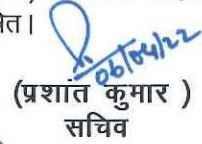 षित।
06/04/22
(प्रशांत कुमार )
सचिव